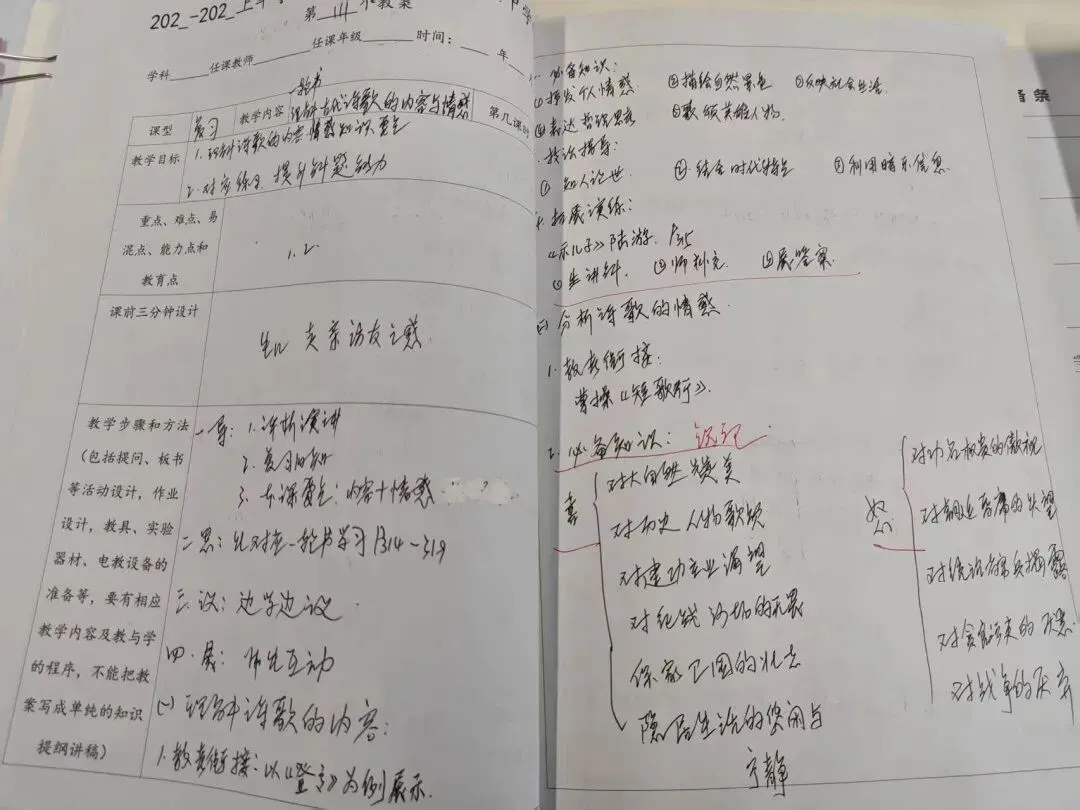 202_-202_上
第 111 个教案
学科 任课教师 任课年级 时间: 年
课型 复习 教学内容 一轮书 理解古代诗歌的内容与情感 第几课时
教学目标 1.理解诗歌的内容、情感知识要点
2.对应练习,提升解题能力
重点、难点、易
混点、能力点和
教育点
1.2
课前三分钟设计
教学步骤和方法
(包括提问、板书
等活动设计,作业
设计,教具、实验
器材、电教设备的
准备等,要有相应
教学内容及教与学
的程序,不能把教
案写成单纯的知识
提纲讲稿)
一.导: 1.评析演讲
2.复习旧知
3.本课要点:内容+情感
二.思: 一轮书学习P314-319
三.议: 边学边议
四.展: 师生互动
(一)理解诗歌的内容:
1.教考衔接: 以《登高》为例展示.
必备知识:
①抒发个人情感 ②描绘自然景色 ③反映社会生活
④表达哲理思考 ⑤歌颂英雄人物.
技法指导:
①知人论世 ②结合时代特点 ③利用暗示信息
拓展演练:
《示儿子》陆游. P315
①生讲解. ②师补充. ③展答案.
(二)分析诗歌的情感.
1.教考衔接:
曹操《短歌行》.
2.必备知识: 识记.
喜
对大自然赞美
对历史人物歌颂
对建功立业渴望
对纯朴的
保家卫国的壮志
隐居生活的悠闲与
宁静
怒
对功名权贵的蔑视
对朝廷的失望
对统治揭露
对贪官污吏的厌恶
对战争的厌弃